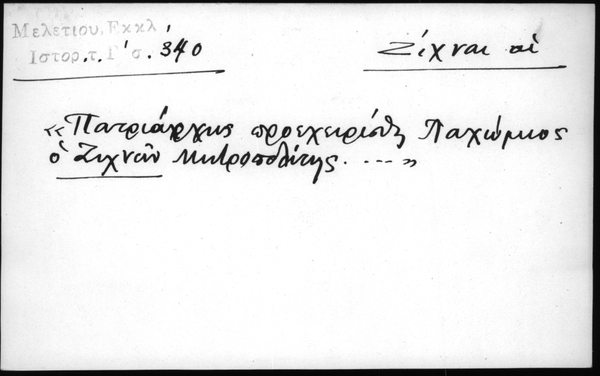 Μελετίου, Εκκλ.
Ιστορ. τ. Γ΄ σ. 340
Ζίχναι αἱ
«Πατριάρχης προεχειρίσθη Παχώμιος
ὁ Ζιχνῶν Μητροπολίτης. ...»